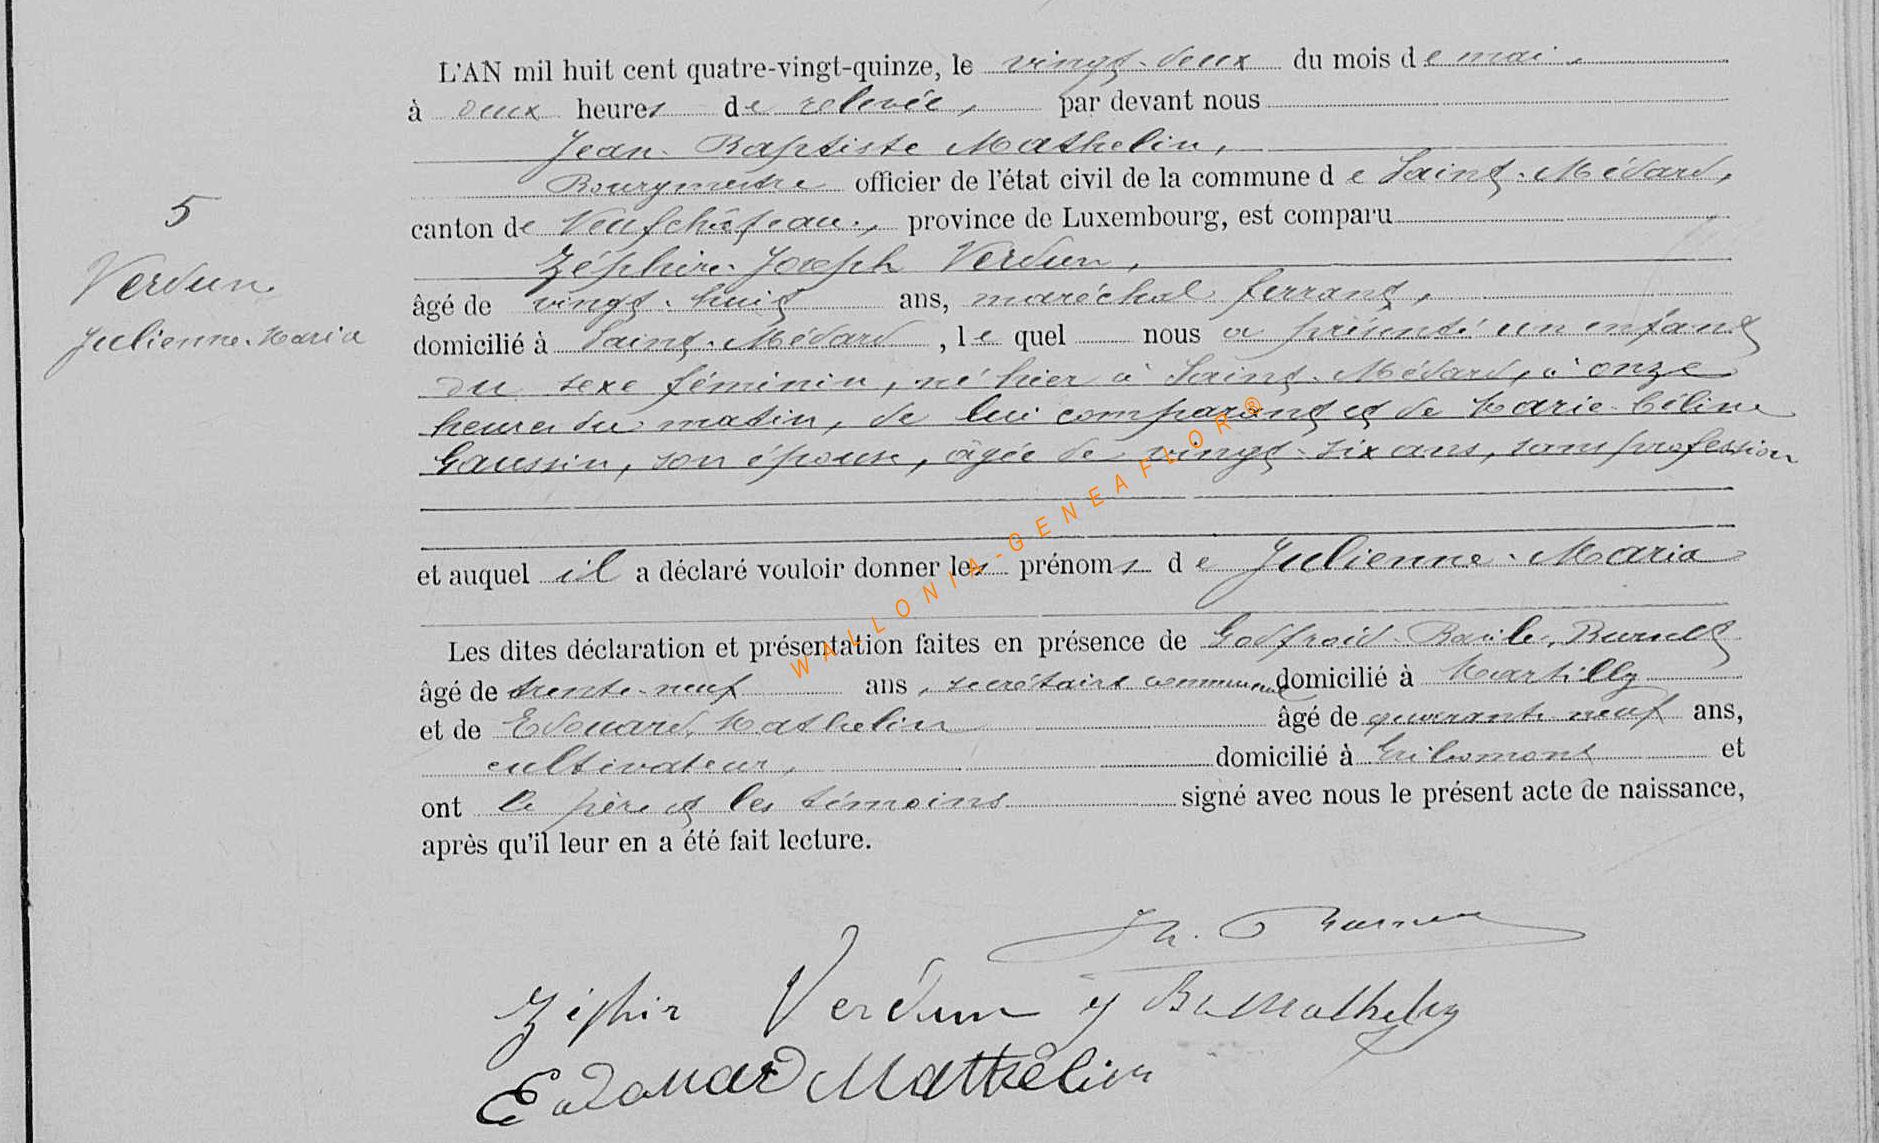 L'AN mil huit cent quatre-vingt-quinze, le vingt-deux du mois de mai,
à deux heures de relevée, par devant nous
Jean-Baptiste Mathelin,
Bourgmestre officier de l'état civil de la commune de Saint-Médard,
canton de Neufchâteau, province de Luxembourg, est comparu
5
Verdun
Julienne-Maria
Zéphire-Joseph Verdun,
âgé de vingt-huit ans, maréchal ferrant,
domicilié à Saint-Médard, le quel nous a présenté un enfant
du sexe féminin, né hier à Saint-Médard, à onze
heures du matin, de lui comparant et de Marie-Céline
Gaussin, son épouse, âgée de vingt-six ans, sans profession
et auquel il a déclaré vouloir donner les prénoms de Julienne-Maria
Les dites déclaration et présentation faites en présence de Godfroid-Basile
âgé de trente-neuf ans, secrétaire communal domicilié à Martilly
et de Edouard Mathelin âgé de quarante-neuf ans,
cultivateur, domicilié à Gribomont et
ont le père et les témoins signé avec nous le présent acte de naissance,
après qu'il leur en a été fait lecture.
Zéphir Verdun J Bte Mathelin
Edouard Mathelin
WALLONIA-GENEAFLOR®